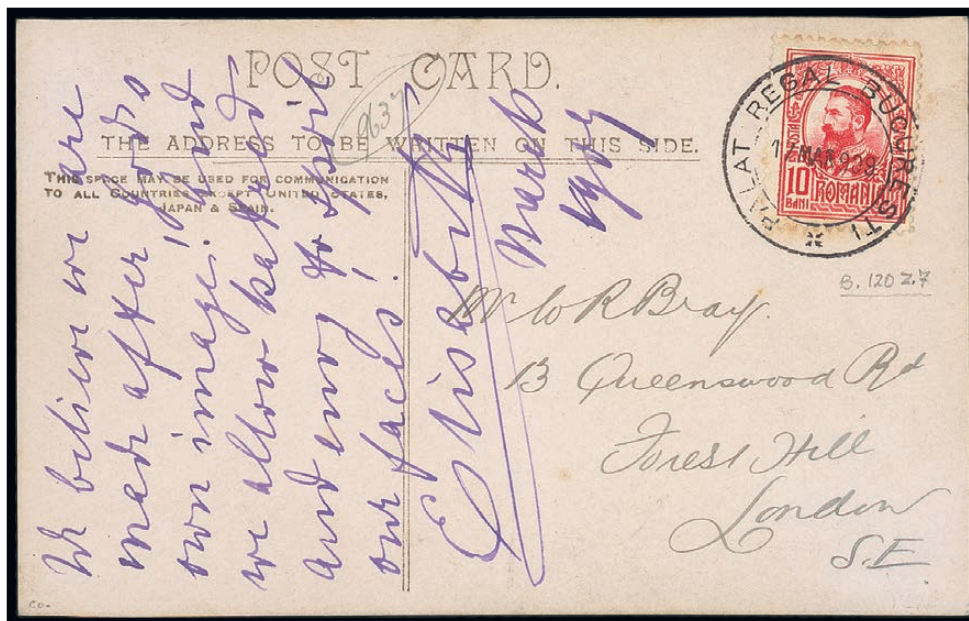 POST CARD.
THE ADDRESS TO BE WRITTEN ON THIS SIDE.
THIS SPACE MAY BE USED FOR COMMUNICATION
TO ALL COUNTRIES EXCEPT UNITED STATES,
JAPAN & SPAIN.
9637
We believe we are
made after God's
own image! And
we allow hatred
and envy to spoil
our faces!
Elisabeth
March
1909
PALAT REGAL BUCURESTI
17 MAR 929
10
BANI
ROMANIA
B. 120 Z.7
Mr W R Bray.
13 Queenswood Rd
Forest Hill
London
S.E
co.